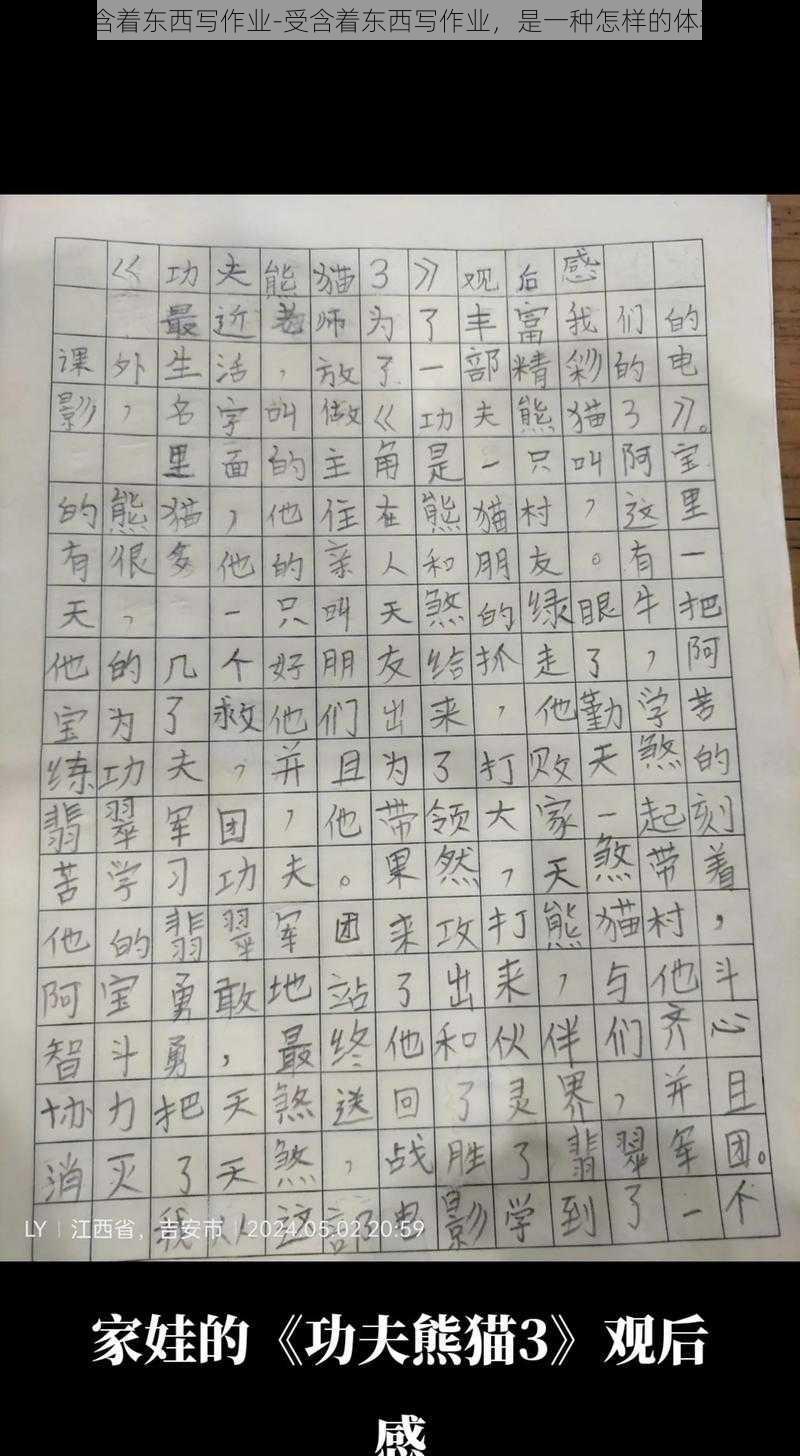 含着东西写作业-受含着东西写作业，是一种怎样的体
《功夫熊猫3》观后感
最近老师为了丰富我们的
课外生活，放了一部精彩的电
影，名字叫做《功夫熊猫3》。
里面的主角是一只叫阿宝
的熊猫，他住在熊猫村，这里
有很多他的亲人和朋友。有一
天，一只叫天煞的绿眼牛把
他的几个好朋友给抓走了，阿
宝为了救他们出来，他勤学苦
练功夫，并且为了打败天煞的
翡翠军团，他带领大家一起刻
苦学习功夫。果然，天煞带着
他的翡翠军团来攻打熊猫村，
阿宝勇敢地站了出来，与他斗
智斗勇，最终他和伙伴们齐心
协力把天煞送回了灵界，并且
消灭了天煞，战胜了翡翠军团。
我从这部电影学到了一个
LY | 江西省，吉安市 | 2024.05.02 20:59
家娃的《功夫熊猫3》观后
感